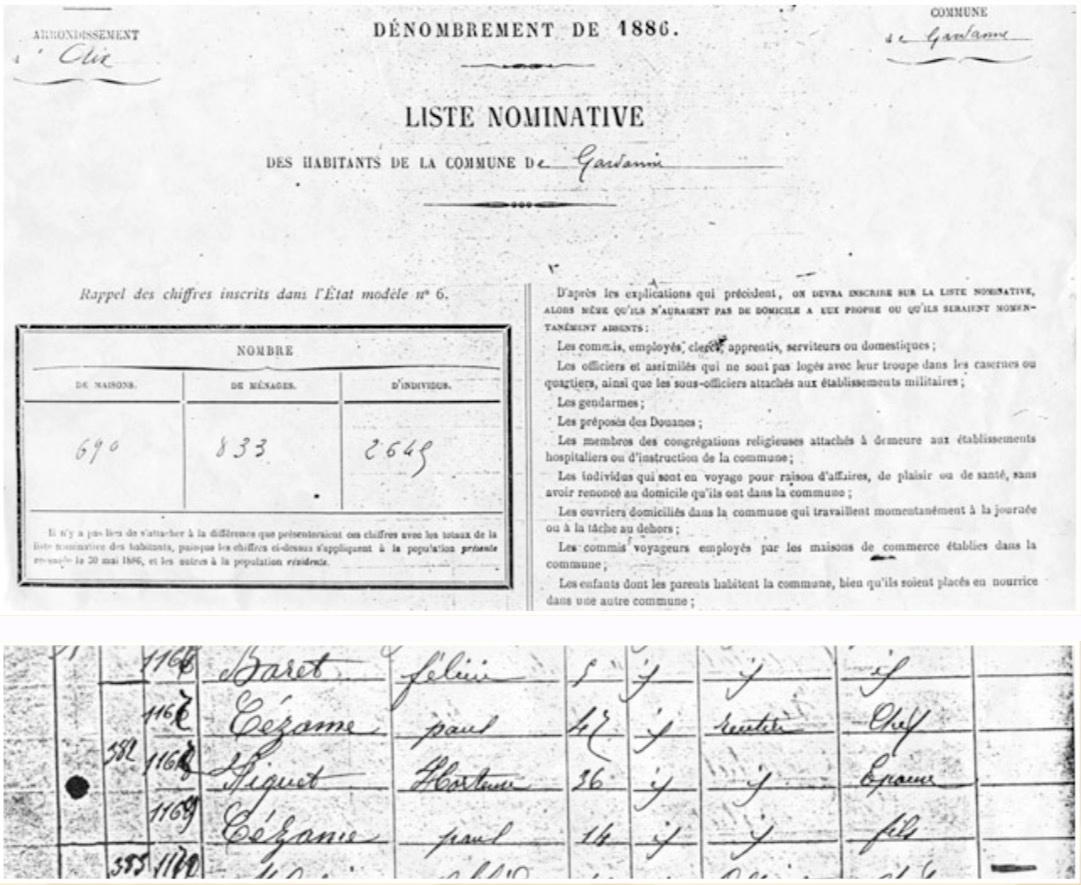 ARRONDISSEMENT
d' Aix
DÉNOMBREMENT DE 1886.
COMMUNE
de Gardanne
LISTE NOMINATIVE
DES HABITANTS DE LA COMMUNE De Gardanne
Rappel des chiffres inscrits dans l'État modèle nº 6.
NOMBRE
DE MAISONS. DE MÉNAGES. D'INDIVIDUS.
690 833 2649
Il n'y a pas lieu de s'attacher à la différence que présenteraient ces chiffres avec les totaux de la
liste nominative des habitants, puisque les chiffres ci-dessus s'appliquent à la population présente
le 30 mai 1886, et les autres à la population résidente.
D'après les explications qui précèdent, ON DEVRA INSCRIRE SUR LA LISTE NOMINATIVE,
ALORS MÊME QU'ILS N'AURAIENT PAS DE DOMICILE A EUX PROPRE OU QU'ILS SERAIENT MOMEN-
TANÉMENT ABSENTS :
Les commis, employés, clercs, apprentis, serviteurs ou domestiques ;
Les officiers et assimilés qui ne sont pas logés avec leur troupe dans les casernes ou
quartiers, ainsi que les sous-officiers attachés aux établissements militaires ;
Les gendarmes ;
Les préposés des Douanes ;
Les membres des congrégations religieuses attachés à demeure aux établissements
hospitaliers ou d'instruction de la commune ;
Les individus qui sont en voyage pour raison d'affaires, de plaisir ou de santé, sans
avoir renoncé au domicile qu'ils ont dans la commune ;
Les ouvriers domiciliés dans la commune qui travaillent momentanément à la journée
ou à la tâche au dehors ;
Les commis voyageurs employés par les maisons de commerce établies dans la
commune ;
Les enfants dont les parents habitent la commune, bien qu'ils soient placés en nourrice
dans une autre commune ;
1166 Baret félicie 5 if if if
1167 Cézanne paul 47 if rentier Chef
382 1168 Fiquet Hortense 36 if if Epouse
1169 Cézanne paul 14 if if fils
383 1170